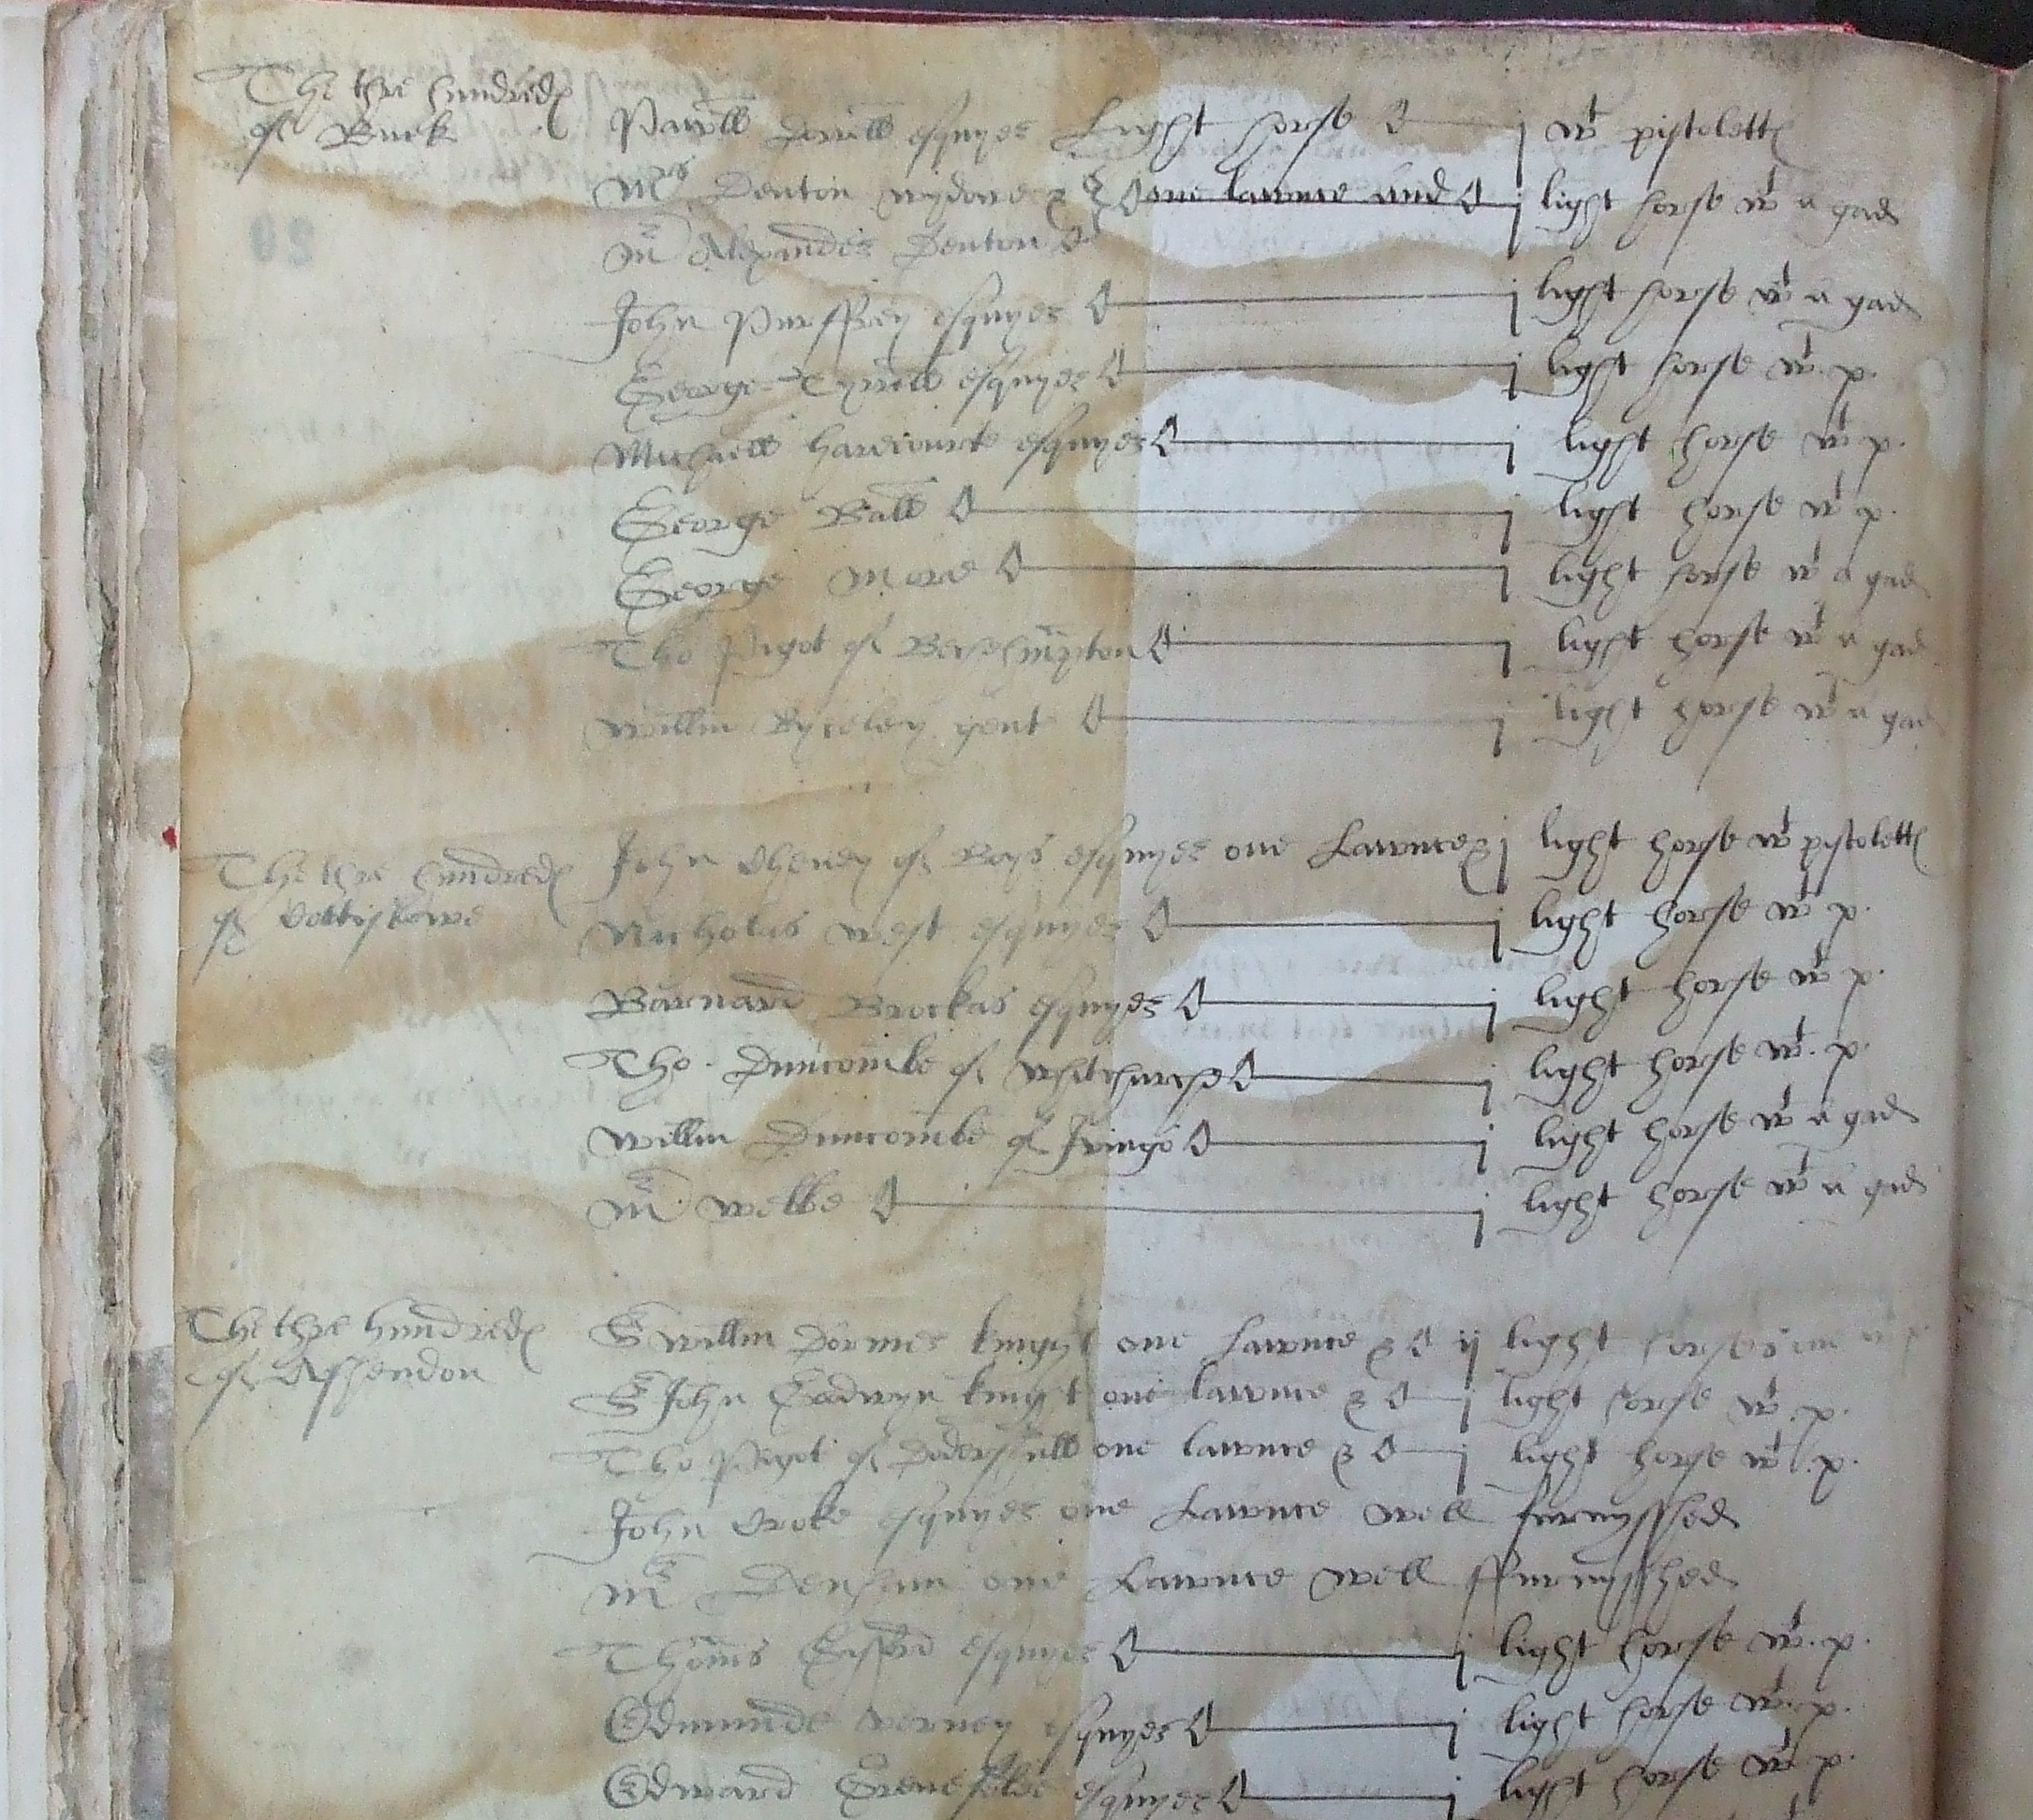 The thre hundred
of Buck
Pawll Dorrell esquyer Light horse j wt pistolett
Mrs Denton wydowe & one lawnce and j light horse wt a gad
Mr Alexander Denton
John Pursffrey esquyer j light horse wt a gad
George Tyrrell esquyer j light horse wt. p.
Michaell harecourte esquyer j light horse wt p.
George Ball j light horse wt p.
George More j light horse wt a gad
Tho Pigot of Bechampton j light horse wt a gad
Willm gent j light horse wt a gad
The thre hundred
of Cottislowe
John Cheney of esquyer one Lawnce & j light horse wt pistolett
Nicholas West esquyer j light horse wt p.
Barnard Brockas esquyer j light horse wt p.
Tho. Duncombe of Whitchurch j light horse wt. p.
Willm Duncombe of Ivingo j light horse wt a gad
Mr Webbe j light horse wt a gad
The thre hundred
of Asshendon
Sr Willm Dormer knight one Lawnce & ij light horse
Sr John Godwyn knight one lawnce & j light horse wt. p.
Tho Pigot of Dodershall one lawnce & j light horse wt. p.
John Croke esquyer one Lawnce well furnysshed
Mr Denham one Lawnce well ffurnysshed
Thoms esquyer j light horse wt. p.
Edmunde Verney esquyer j light horse wt. p.
Edward Grenefelde esquyer j light horse wt p.